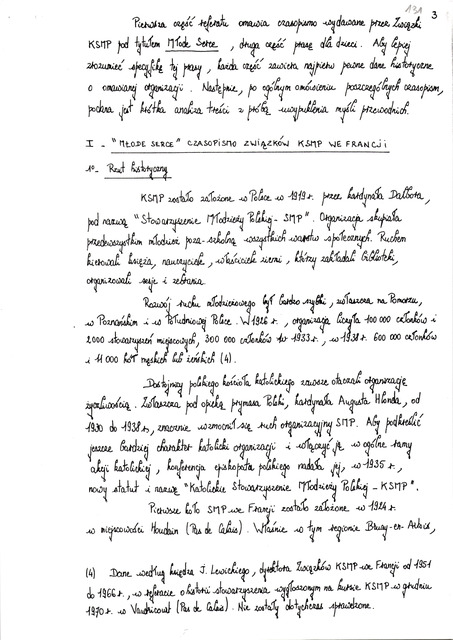 131
3
Pierwsza część referatu omawia czasopismo wydawane przez Związki
KSMP pod tytułem Młode Serce , druga część prasę dla dzieci. Aby lepiej
zrozumieć specyfikę tej prasy, każda część zawiera najpierw pewne dane historyczne
o omawianej organizacji. Następnie, po ogólnym omówieniu poszczególnych czasopism,
podana jest krótka analiza treści z próbą uwypuklenia myśli przewodnich.
I - "MŁODE SERCE" CZASOPISMO ZWIĄZKÓW KSMP WE FRANCJI
1°- Rzut historyczny
KSMP zostało założone w Polsce w 1919 r. przez kardynała Dalbora,
pod nazwą "Stowarzyszenie Młodzieży Polskiej - SMP". Organizacja skupiała
przedewszystkim młodzież poza-szkolną wszystkich warstw społecznych. Ruchem
kierowali księża, nauczyciele, właściciele ziemi, którzy zakładali biblioteki,
organizowali sesje i zebrania.
Rozwój ruchu młodzieżowego był bardzo szybki, zwłaszcza na Pomorzu,
w Poznańskim i w Południowej Polsce. W 1926 r., organizacja liczyła 100 000 członków i
2000 stowarzyszeń miejscowych, 300 000 członków w 1933 r., w 1938 r. 600 000 członków
i 11 000 kół męskich lub żeńskich (4).
Dostojnicy polskiego kościoła katolickiego zawsze otaczali organizację
życzliwością. Zwłaszcza pod opieką prymasa Polski, kardynała Augusta Hlonda, od
1930 do 1938 r., znacznie wzmocnił się ruch organizacyjny SMP. Aby podkreślić
jeszcze bardziej charakter katolicki organizacji i włączyć ją w ogólne ramy
akcji katolickiej, konferencja episkopatu polskiego nadała jej, w 1935 r.,
nowy statut i nazwę "Katolickie Stowarzyszenie Młodzieży Polskiej - KSMP".
Pierwsze koło SMP we Francji zostało założone w 1924 r.
w miejscowości Houdain (Pas de Calais). Właśnie w tym regionie Bruay-en-Artois,
(4) Dane według księdza J. Lewickiego, dyrektora Związków KSMP we Francji od 1951
do 1966 r., w referacie o historii stowarzyszenia wygłoszonym na kursie KSMP w grudniu
1970 r. w Vaudricourt (Pas de Calais). Nie zostały dotychczas sprawdzone.